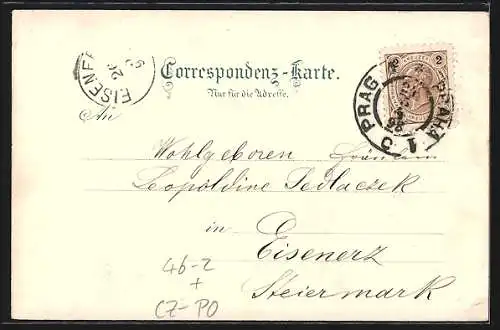 Correspondenz-Karte.
Nur für die Adresse.
An
Wohlgeboren Fräulein
Leopoldine Sedlaczek
in
Eisenerz
Steiermark
46-2
+
CZ-PO
EISENE
PRAG
PRAHA
1
2
2